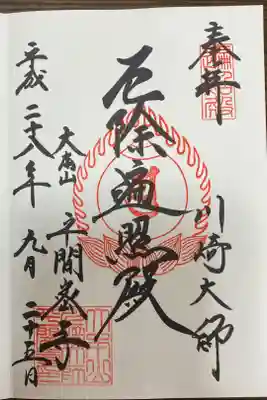 奉拝
川崎大師
厄除遍照殿
大本山 平間寺
平成二十八年 九月 二十五日